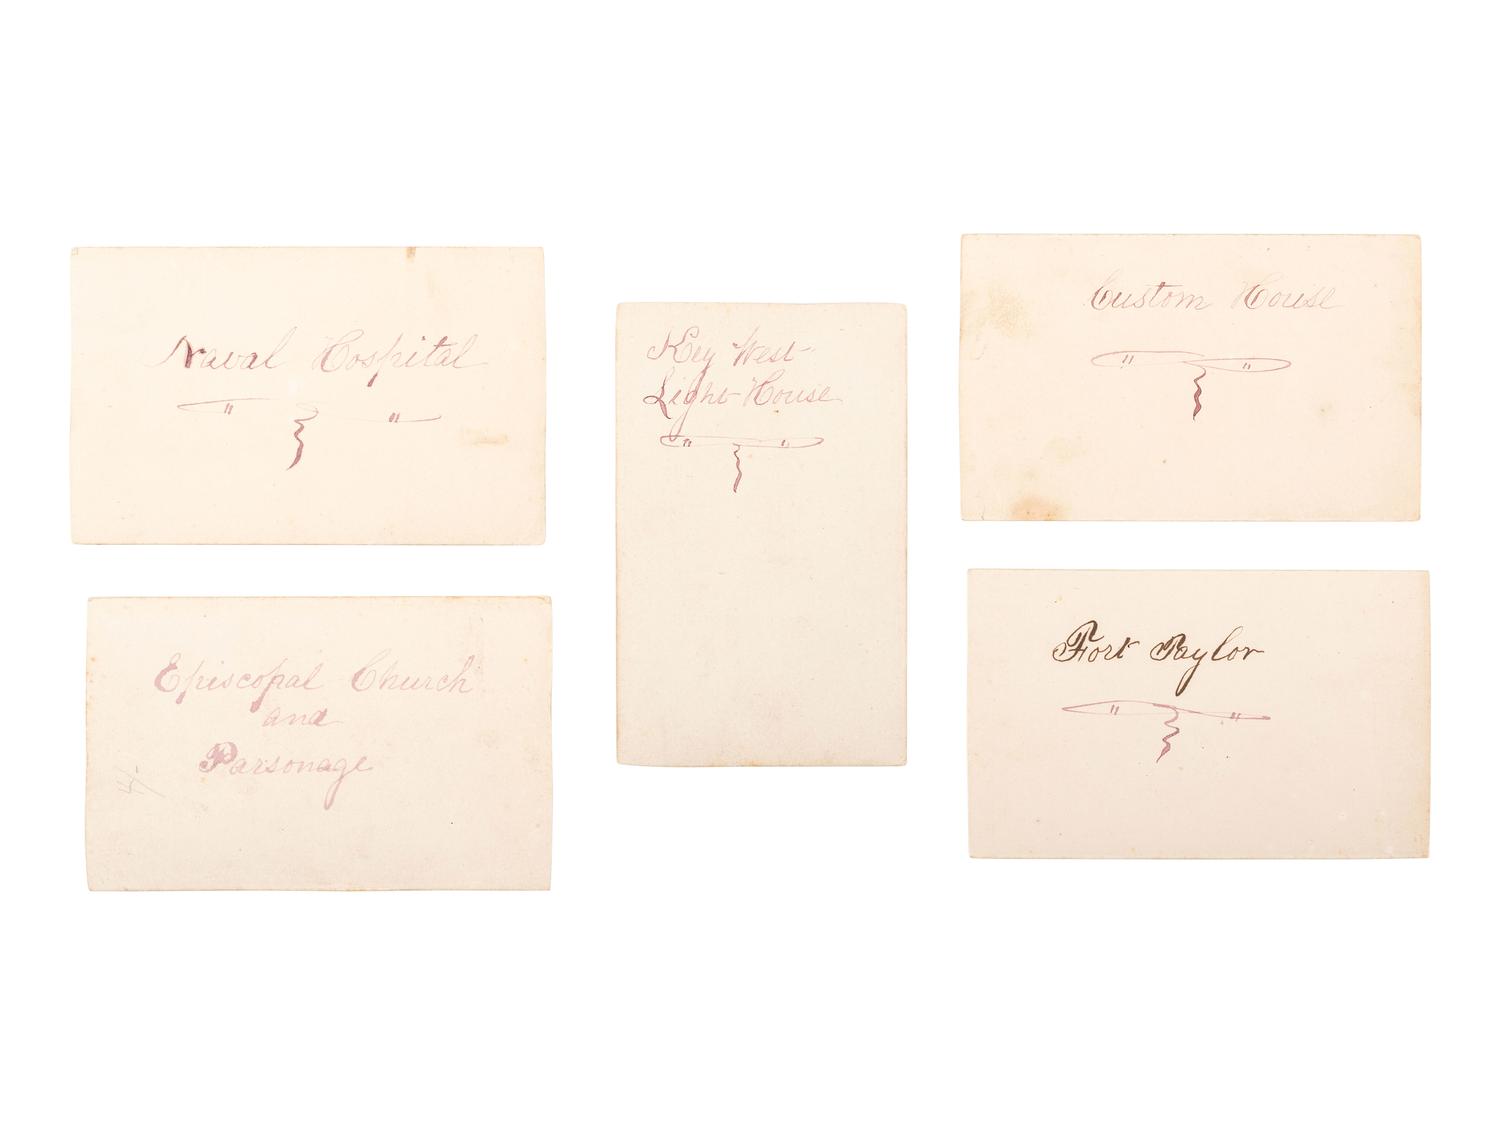 Naval Hospital
Episcopal Church
and
Parsonage
Key West
Light-House
Custom House
Fort Taylor